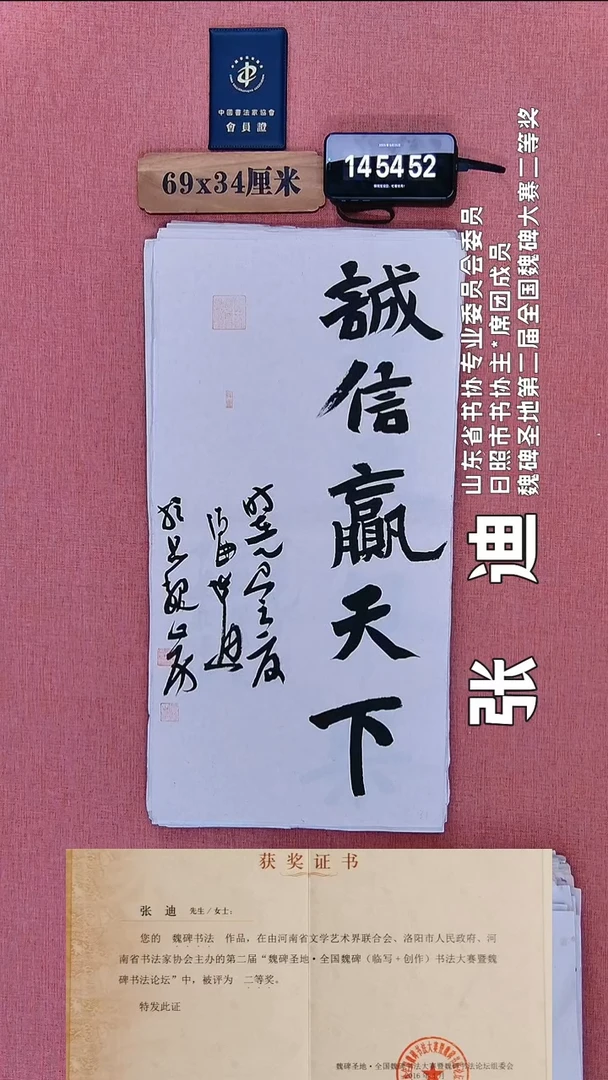 中國書法家協會
會員證
69x34厘米
14 54 52
誠信贏天下
山东省书协专业委员会委员
日照市书协主*席团成员
魏碑圣地第二届全国魏碑大赛二等奖
张 迪
获奖证书
张 迪 先生/女士:
您的 魏碑书法 作品，在由河南省文学艺术界联合会、洛阳市人民政府、河
南省书法家协会主办的第二届“魏碑圣地·全国魏碑（临写+创作）书法大赛暨魏
碑书法论坛”中，被评为 二等奖。
特发此证
魏碑圣地·全国魏碑书法大赛暨魏碑书法论坛组委会